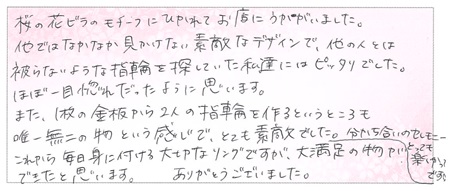 桜の花ビラのモチーフにひかれてお店にうかがいました。
他ではなかなか見かけない素敵なデザインで、他の人とは
被らないような指輪を探していた私達にはピッタリでした。
ほぼ一目惚れだったように思います。
また、1枚の金板から2人の指輪を作るというところも
唯一無二の物という感じで、とても素敵でした。分かち合いのセレモニー
とっても
楽しかった
です
これから毎日身に付ける大切なリングですが、大満足の物が
できたと思います。 ありがとうございました。